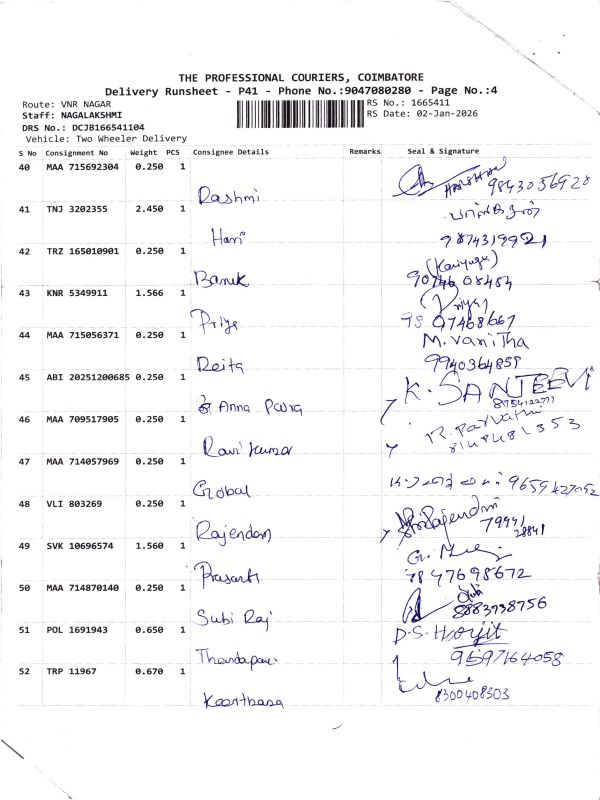 THE PROFESSIONAL COURIERS, COIMBATORE
Delivery Runsheet - P41 - Phone No.:9047080280 - Page No.:4
Route: VNR NAGAR
RS No.: 1665411
Staff: NAGALAKSHMI
RS Date: 02-Jan-2026
DRS No.: DCJB166541104
Vehicle: Two Wheeler Delivery
S No Consignment No Weight PCS Consignee Details Remarks Seal & Signature
40 MAA 715692304 0.250 1
Rashmi 9843056928
41 TNJ 3202355 2.450 1
Hari 9874319921
42 TRZ 165010901 0.250 1
43 KNR 5349911 1.566 1
Priya
44 MAA 715056371 0.250 1
M. Vanitha
Reita 9940364859
45 ABI 20251200685 0.250 1
K. SANJEEVI
Anna
46 MAA 709517905 0.250 1
R. Parvathi
Ravi kumar
47 MAA 714057969 0.250 1
Global
48 VLI 803269 0.250 1
Rajendran
49 SVK 10696574 1.560 1
Prasanth 9847698672
50 MAA 714870140 0.250 1
Subi Raj 8883738756
51 POL 1691943 0.650 1
D.S. Harjit
9597164058
52 TRP 11967 0.670 1
8300408303